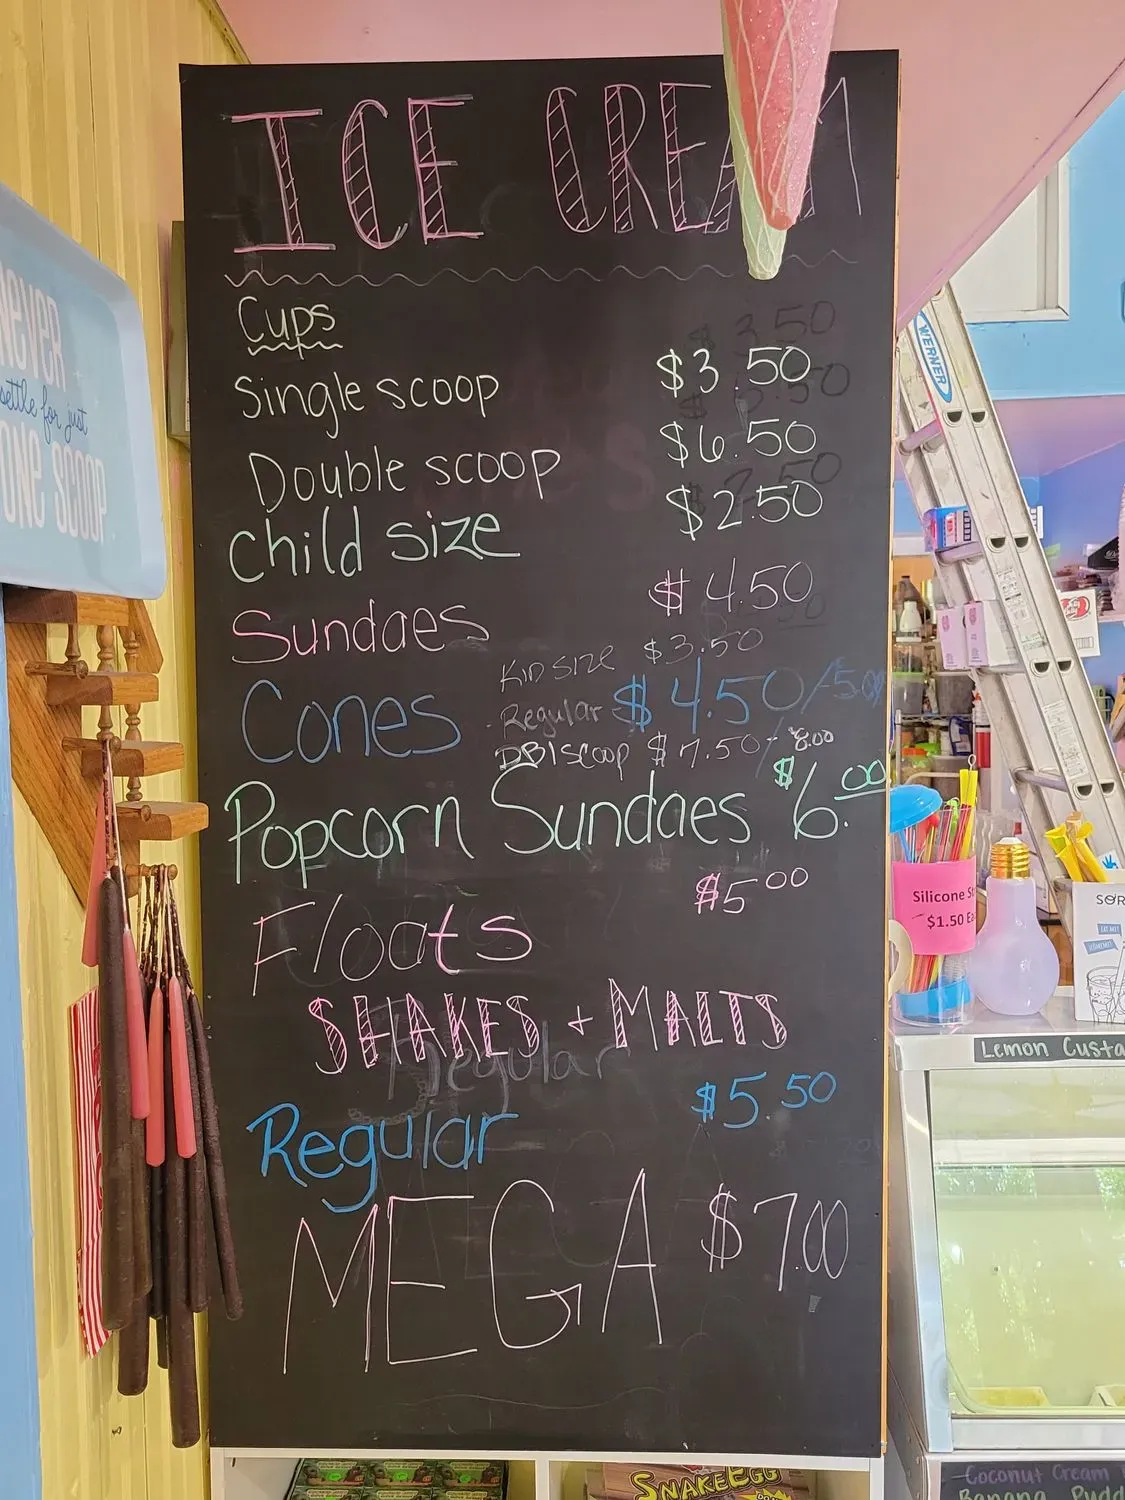 ICE CREAM
Cups
Single scoop $3.50
Double scoop $6.50
Child size $2.50
Sundaes $4.50
Cones
Kid size $3.50
Regular - $4.50/5.00
DBl scoop $7.50/8.00
Popcorn Sundaes $6.00
Floats $5.00
SHAKES + MALTS
Regular
Regular $5.50
MEGA $7.00
NEVER
settle for just
ONE SCOOP
WERNER
Silicone
$1.50
Lemon Custa
Coconut Cream
Banana Pudd
SNAKE EGG